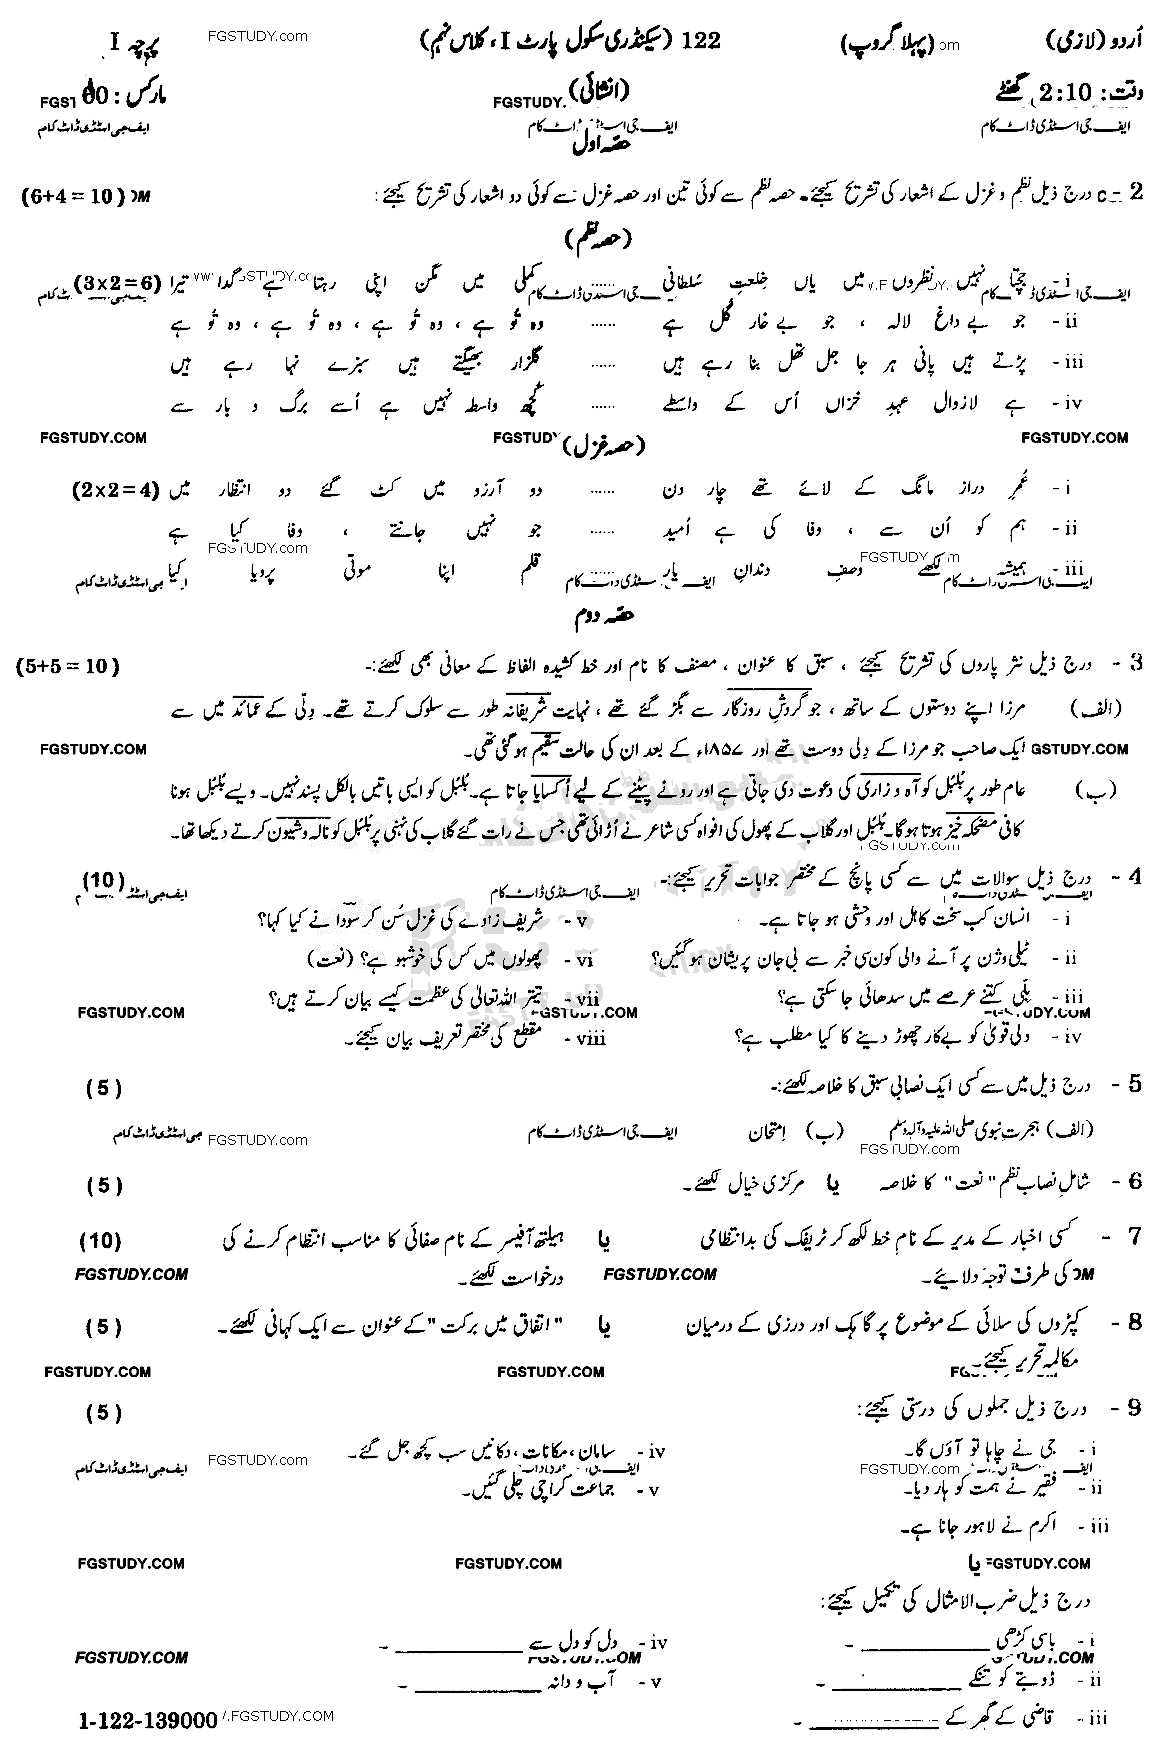 اُردو (لازمی) (پہلا گروپ) 122 (سیکنڈری سکول پارٹ I، کلاس نہم) پرچہ I
FGSTUDY.com
وقت: 2:10 گھنٹے (انشائی) مارکس: 60
FGSTUDY.
ایف جی اسٹڈی ڈاٹ کام ایف جی اسٹڈی ڈاٹ کام ایف جی اسٹڈی ڈاٹ کام
حصہ اول
2 - درج ذیل نظم و غزل کے اشعار کی تشریح کیجئے۔ حصہ نظم سے کوئی تین اور حصہ غزل سے کوئی دو اشعار کی تشریح کیجئے: (6+4 = 10)
(حصہ نظم)
i - جچتا نہیں نظروں میں یاں خلعتِ سُلطانی ...... کملی میں مگن اپنی رہتا ہے گدا تیرا (3x2=6)
ii - جو بے داغ لالہ ، جو بے خار گل ہے ...... وہ تُو ہے ، وہ تُو ہے ، وہ تُو ہے ، وہ تُو ہے
iii - پڑتے ہیں پانی ہر جا جل تھل بنا رہے ہیں ...... گلزار بھیگتے ہیں سبزے نہا رہے ہیں
iv - ہے لازوال عہدِ خزاں اُس کے واسطے ...... کچھ واسطہ نہیں ہے اُسے برگ و بار سے
FGSTUDY.COM (حصہ غزل) FGSTUDY FGSTUDY.COM
i - عُمرِ دراز مانگ کے لائے تھے چار دن ...... دو آرزو میں کٹ گئے دو انتظار میں (2x2=4)
ii - ہم کو اُن سے ، وفا کی ہے اُمید ...... جو نہیں جانتے ، وفا کیا ہے
FGSTUDY.com FGSTUDY
iii - ہمیشہ لکھے وصفِ دندانِ یار ...... قلم اپنا موتی پرویا کیا
حصہ دوم
3 - درج ذیل نثر پاروں کی تشریح کیجئے ، سبق کا عنوان ، مصنف کا نام اور خط کشیدہ الفاظ کے معانی بھی لکھئے:- (5+5 = 10)
(الف) مرزا اپنے دوستوں کے ساتھ ، جو گردشِ روزگار سے بگڑ گئے تھے ، نہایت شریفانہ طور سے سلوک کرتے تھے۔ دِلّی کے عمائد میں سے
ایک صاحب جو مرزا کے دِلی دوست تھے اور ۱۸۵۷ء کے بعد ان کی حالت سقیم ہو گئی تھی۔ GSTUDY.COM FGSTUDY.COM
(ب) عام طور پر بُلبُل کو آہ و زاری کی دعوت دی جاتی ہے اور رونے پیٹنے کے لیے اُکسایا جاتا ہے۔ بُلبُل کو ایسی باتیں بالکل پسند نہیں۔ ویسے بُلبُل ہونا
کافی مضحکہ خیز ہوتا ہو گا۔ بُلبُل اور گلاب کے پھول کی افواہ کسی شاعر نے اُڑائی تھی جس نے رات گئے گلاب کی ٹہنی پر بُلبُل کو نالہ و شیون کرتے دیکھا تھا۔
FGSTUDY.com
4 - درج ذیل سوالات میں سے کسی پانچ کے مختصر جوابات تحریر کیجئے:- (10)
ایف جی اسٹڈی ڈاٹ کام
i - انسان کب سخت کاہل اور وحشی ہو جاتا ہے۔ v - شریف زادے کی غزل سُن کر سودا نے کیا کہا؟
ii - ٹیلی وژن پر آنے والی کون سی خبر سے بی جان پریشان ہو گئیں؟ vi - پھولوں میں کس کی خوشبو ہے؟ (نعت)
iii - بلی کتنے عرصے میں سدھائی جا سکتی ہے؟ vii - تیتر اللہ تعالیٰ کی عظمت کیسے بیان کرتے ہیں؟
FGSTUDY.COM
iv - دلی قویٰ کو بےکار چھوڑ دینے کا کیا مطلب ہے؟ viii - مقطع کی مختصر تعریف بیان کیجئے۔
5 - درج ذیل میں سے کسی ایک نصابی سبق کا خلاصہ لکھئے:- (5)
(الف) ہجرتِ نبوی صلی اللہ علیہ وآلہ وسلم (ب) اِمتحان
ایف جی اسٹڈی ڈاٹ کام FGSTUDY.com جی اسٹڈی ڈاٹ کام
FGSTUDY.com
6 - شاملِ نصاب نظم "نعت" کا خلاصہ یا مرکزی خیال لکھئے۔ (5)
7 - کسی اخبار کے مدیر کے نام خط لکھ کر ٹریفک کی بدانتظامی یا ہیلتھ آفیسر کے نام صفائی کا مناسب انتظام کرنے کی (10)
کی طرف توجہ دلایئے۔ FGSTUDY.COM درخواست لکھئے۔ FGSTUDY.COM
8 - کپڑوں کی سلائی کے موضوع پر گاہک اور درزی کے درمیان یا "اتفاق میں برکت" کے عنوان سے ایک کہانی لکھئے۔ (5)
مکالمہ تحریر کیجئے۔
FGSTUDY.COM FGSTUDY.COM
9 - درج ذیل جملوں کی درستی کیجئے: (5)
i - جی نے چاہا تو آؤں گا۔ iv - سامان، مکانات، دکانیں سب کچھ جل گئے۔
FGSTUDY.com FGSTUDY.com ایف جی اسٹڈی ڈاٹ کام
ii - فقیر نے ہمت کو ہار دیا۔ v - جماعت کراچی چلی گئیں۔
iii - اکرم نے لاہور جانا ہے۔
یا GSTUDY.COM FGSTUDY.COM FGSTUDY.COM
درج ذیل ضرب الامثال کی تکمیل کیجئے:
i - باسی کڑھی __________ ۔ iv - دل کو دل سے __________ ۔
FGSTUDY.COM
ii - ڈوبتے کو تنکے __________ ۔ v - آب و دانہ __________ ۔
iii - قاضی کے گھر کے __________ ۔
.FGSTUDY.COM 1-122-139000